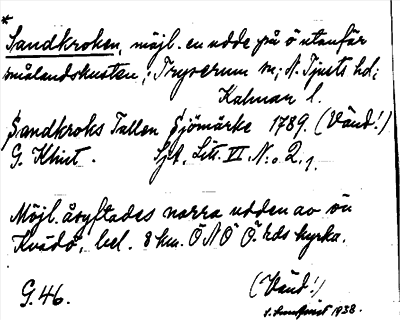 *
Sandkroken, möjl. en udde på ö utanför
smålandskusten; Tryserum sn; N. Tjusts hd;
Kalmar l.
Sandkroks Tallen Sjömärke 1789. (Vänd!)
G. Klint. Sjk. Litt. VI No. 2,1.
Möjl. åsyftades norra udden av ön
Kvädö, bel. 8 km. ÖNÖ Ö. hds kyrka.
G. 46. (Vänd!)
1938.